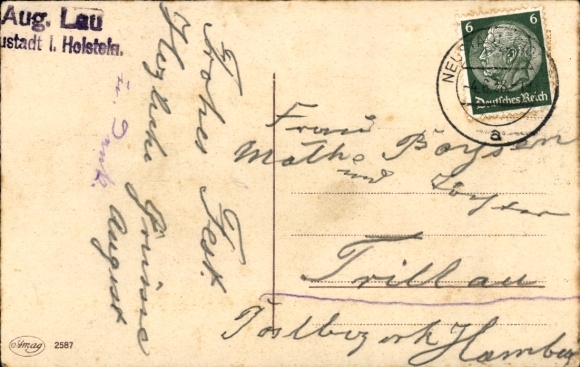 Aug. Lau
ustadt i. Holstein.
Frohes Fest.
Herzliche Grüsse
August
u. Dank.
6 6
Deutsches Reich
NEUS
a
Frau
Mathe Boysen
und Tochter
Trillau
Postbezirk Hamburg
Amag 2587